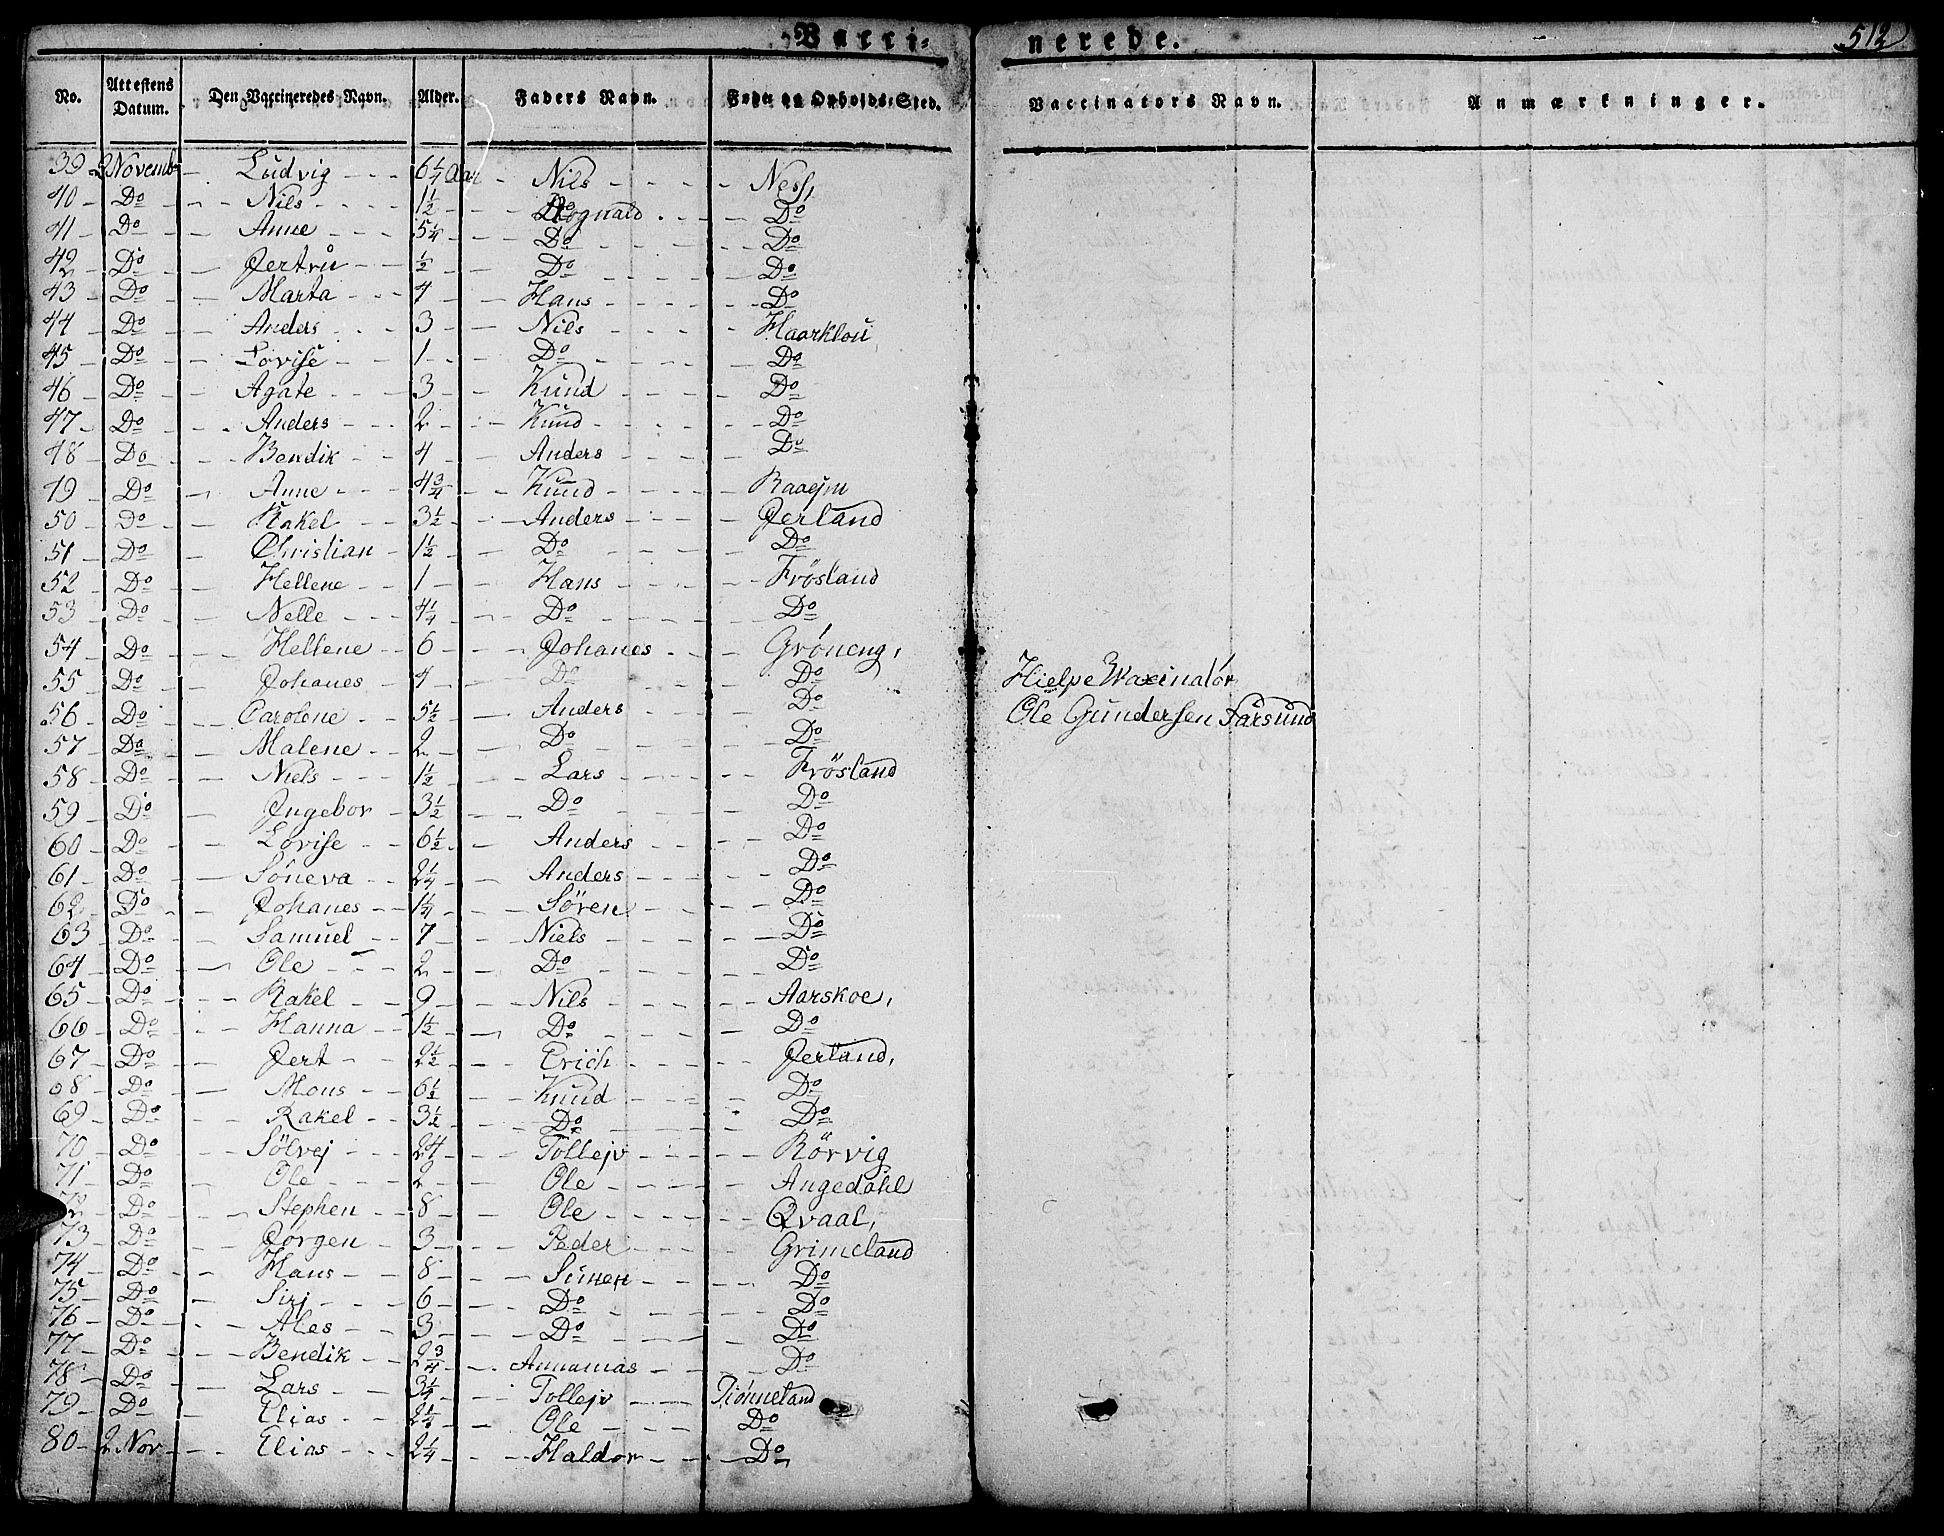 Vacci-nerede. 512
No. Attestens Datum. Den Vaccineredes Navn. Alder. Faders Navn. Føde og Opholds-Sted. Vaccinators Navn. Anmærkninger.
39 2 Novemb Ludvig 6 1/4 Aar Nils Ness,
40 Do Nils 1 1/2 Rognald Do
41 Do Anne 5 1/4 Do Do
42 Do Jertrü 1/2 Do Do
43 Do Marta 4 Hans Do
44 Do Anders 3 Nils Haarklou
45 Do Lovise 1 Do Do
46 Do Agate 3 Knud Do
47 Do Anders 2 Knud Do
48 Do Bendik 4 Anders Do
49 Do Anne 4 3/4 Knud
50 Do Rakel 3 1/2 Anders Jerland
51 Do Christian 1 1/2 Do Do
52 Do Hellene 1 Hans Frösland
53 Do Nelle 4 1/4 Do Do
54 Do Hellene 6 Johanes Gröneng,
55 Do Johanes 4 Do Do Hielpe Waxinatör
56 Do Carolene 5 1/2 Anders Do Ole Gundersen Farsund
57 Do Malene 2 Do Do
58 Do Niels 1 1/2 Lars Frösland
59 Do Jngebor 3 1/2 Do Do
60 Do Lovise 6 1/2 Anders Do
61 Do Söneva 2 1/4 Anders Do
62 Do Johanes 1 1/4 Sören Do
63 Do Samuel 7 Niels Do
64 Do Ole 2 Do Do
65 Do Rakel 9 Nils Aarskoe,
66 Do Hanna 1 1/2 Do Do
67 Do Jert 2 1/2 Erich Jerland,
68 Do Mons 6 1/2 Knud Do
69 Do Rakel 3 1/2 Do Do
70 Do Sölvej 2 1/4 Tollejv Rörvig
71 Do Ole 2 Ole Angedahl
72 Do Stephen 8 Ole Qvaal,
73 Do Jörgen 3 Peder Grimeland
74 Do Hans 8 Do
75 Do Sirj 6 Do Do
76 Do Ales 3 Do Do
77 Do Bendik 2 3/4 Annanias Do
78 Do Lars 3 1/4 Tollejv Tiönneland
79 Do Elias 2 1/4 Ole Do
80 2 Nov Elias 2 1/4 Haldor Do